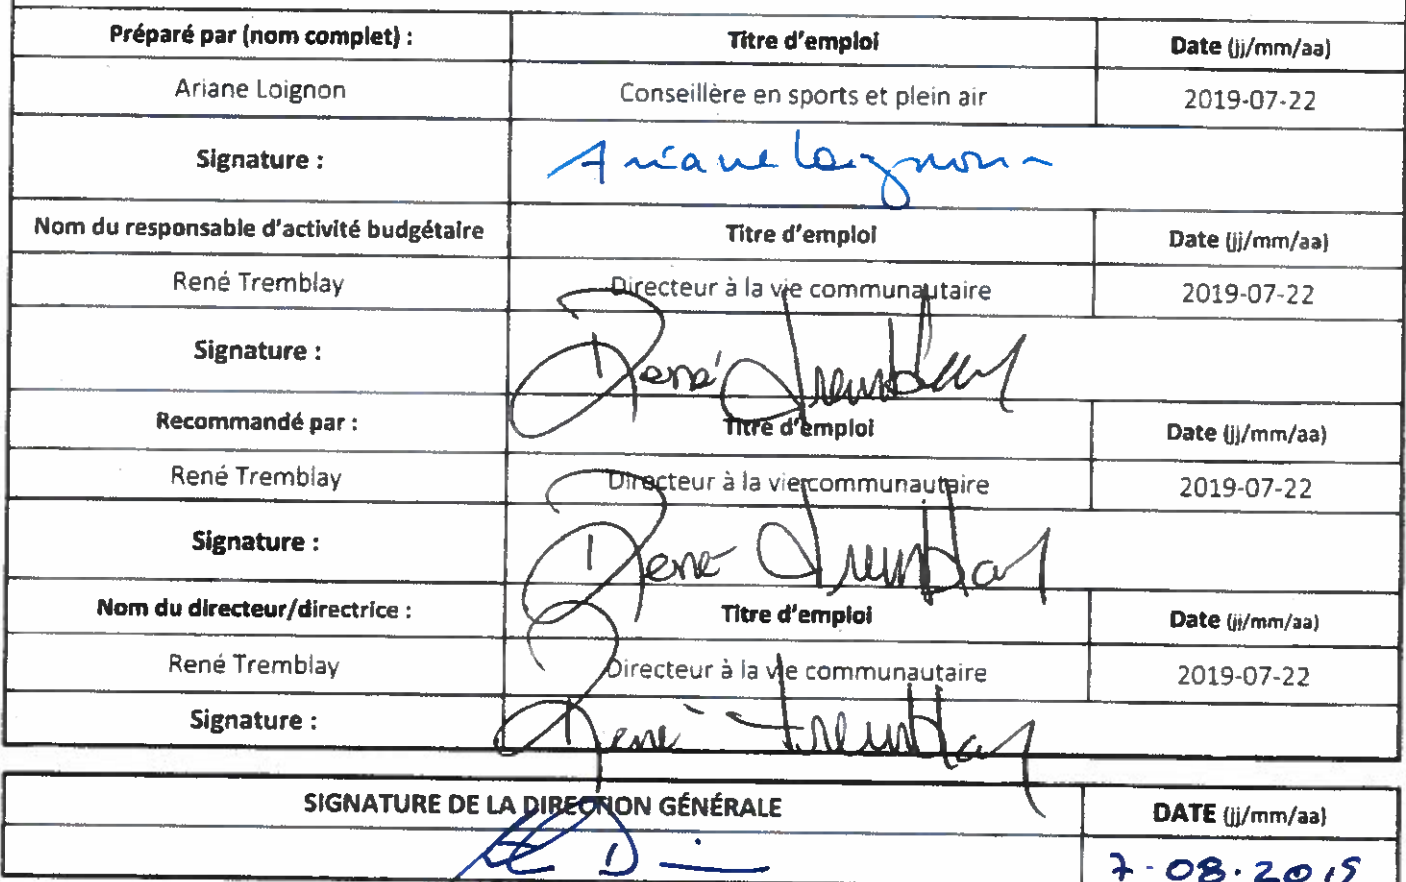 Préparé par (nom complet) : Titre d'emploi Date (jj/mm/aa)
Ariane Loignon Conseillère en sports et plein air 2019-07-22
Signature : Ariane Loignon
Nom du responsable d'activité budgétaire Titre d'emploi Date (jj/mm/aa)
René Tremblay Directeur à la vie communautaire 2019-07-22
Signature : René Tremblay
Recommandé par : Titre d'emploi Date (jj/mm/aa)
René Tremblay Directeur à la vie communautaire 2019-07-22
Signature : René Tremblay
Nom du directeur/directrice : Titre d'emploi Date (jj/mm/aa)
René Tremblay Directeur à la vie communautaire 2019-07-22
Signature : René Tremblay
SIGNATURE DE LA DIRECTION GÉNÉRALE DATE (jj/mm/aa)
7-08.2019